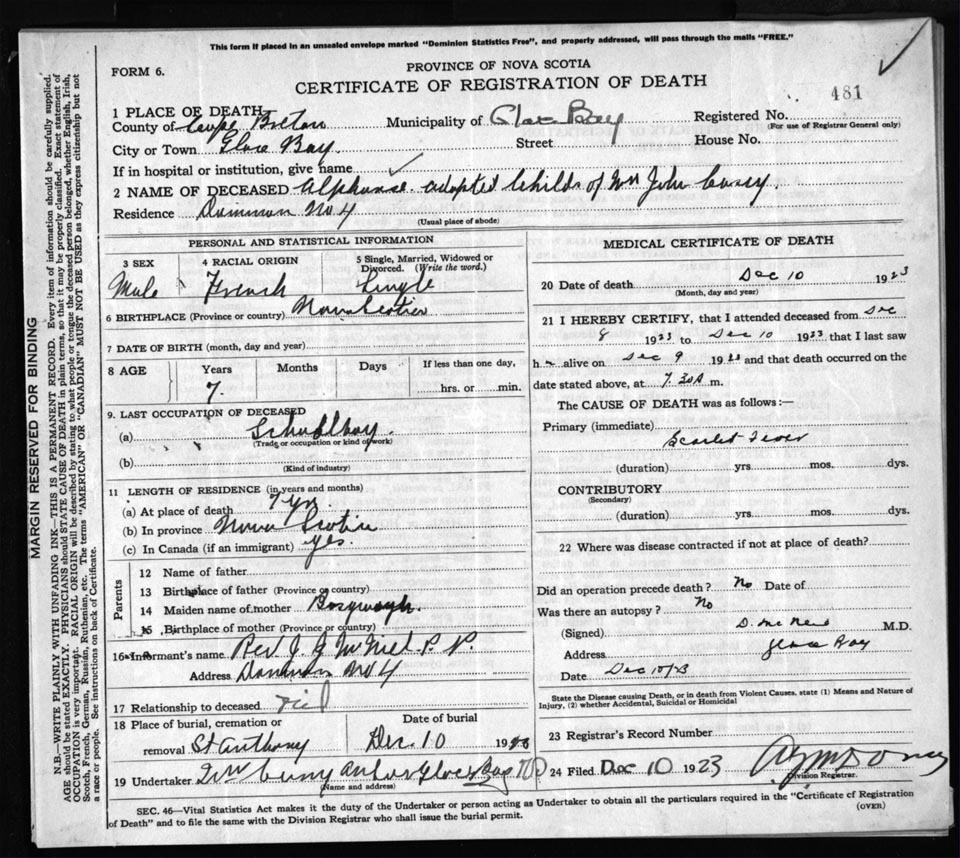 This form if placed in an unsealed envelope marked "Dominion Statistics Free", and properly addressed, will pass through the mails "FREE."
FORM 6.
PROVINCE OF NOVA SCOTIA
CERTIFICATE OF REGISTRATION OF DEATH
481
1 PLACE OF DEATH
County of Cape Breton Municipality of Glace Bay Registered No.
(For use of Registrar General only)
City or Town Glace Bay Street House No.
If in hospital or institution, give name
2 NAME OF DECEASED Alphonse adopted Child of Wm John Casey.
Residence Dominion No 4
(Usual place of abode)
PERSONAL AND STATISTICAL INFORMATION
3 SEX 4 RACIAL ORIGIN 5 Single, Married, Widowed or Divorced. (Write the word.)
Male French Single
6 BIRTHPLACE (Province or country) Nova Scotia
7 DATE OF BIRTH (month, day and year)
8 AGE Years Months Days If less than one day,
7 hrs. or min.
9. LAST OCCUPATION OF DECEASED
(a) Schoolboy.
(Trade or occupation or kind of work)
(b)
(Kind of industry)
11 LENGTH OF RESIDENCE (in years and months)
(a) At place of death 7 yrs
(b) In province Nova Scotia
(c) In Canada (if an immigrant) yes.
Parents
12 Name of father
13 Birthplace of father (Province or country)
14 Maiden name of mother
15 Birthplace of mother (Province or country)
16 Informant's name Rev J. J. McNeil P. P.
Address Dominion No 4
17 Relationship to deceased nil
18 Place of burial, cremation or removal St Anthony
Date of burial Dec. 10 1923
19 Undertaker Glace Bay
(Name and address)
MEDICAL CERTIFICATE OF DEATH
20 Date of death Dec 10 1923
(Month, day and year)
21 I HEREBY CERTIFY, that I attended deceased from Dec
8 1923 to Dec 10 1923 that I last saw
h alive on Dec 9 19 and that death occurred on
date stated above, at 7.30 A m.
The CAUSE OF DEATH was as follows:—
Primary (immediate)
Scarlet Fever
(duration) yrs. mos. dys.
CONTRIBUTORY
(Secondary)
(duration) yrs. mos. dys.
22 Where was disease contracted if not at place of death?
Did an operation precede death? No Date of
Was there an autopsy? No
(Signed) D. McNeil M.D.
Address Glace Bay
Date Dec 10/23
State the Disease causing Death, or in death from Violent Causes, state (1) Means and Nature of
Injury, (2) whether Accidental, Suicidal or Homicidal
23 Registrar's Record Number
24 Filed Dec 10 1923
Division Registrar.
SEC. 46—Vital Statistics Act makes it the duty of the Undertaker or person acting as Undertaker to obtain all the particulars required in the "Certificate of Registration
of Death" and to file the same with the Division Registrar who shall issue the burial permit.
(OVER)
MARGIN RESERVED FOR BINDING
N.B.—WRITE PLAINLY WITH UNFADING INK—THIS IS A PERMANENT RECORD. Every item of information should be carefully supplied.
AGE should be stated EXACTLY. PHYSICIANS should STATE CAUSE OF DEATH in plain terms, so that it may be properly classified. Exact statement of
OCCUPATION is very important. RACIAL ORIGIN will be described by stating to what people or tongue the deceased person belonged, whether English, Irish,
Scotch, French, German, Russian, Ruthenian, etc. The terms "AMERICAN" OR "CANADIAN" MUST NOT BE USED as they express citizenship but not
a race or people. See instructions on back of Certificate.